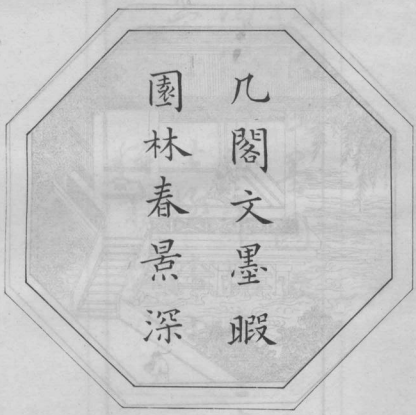 几閣文墨暇
園林春景深